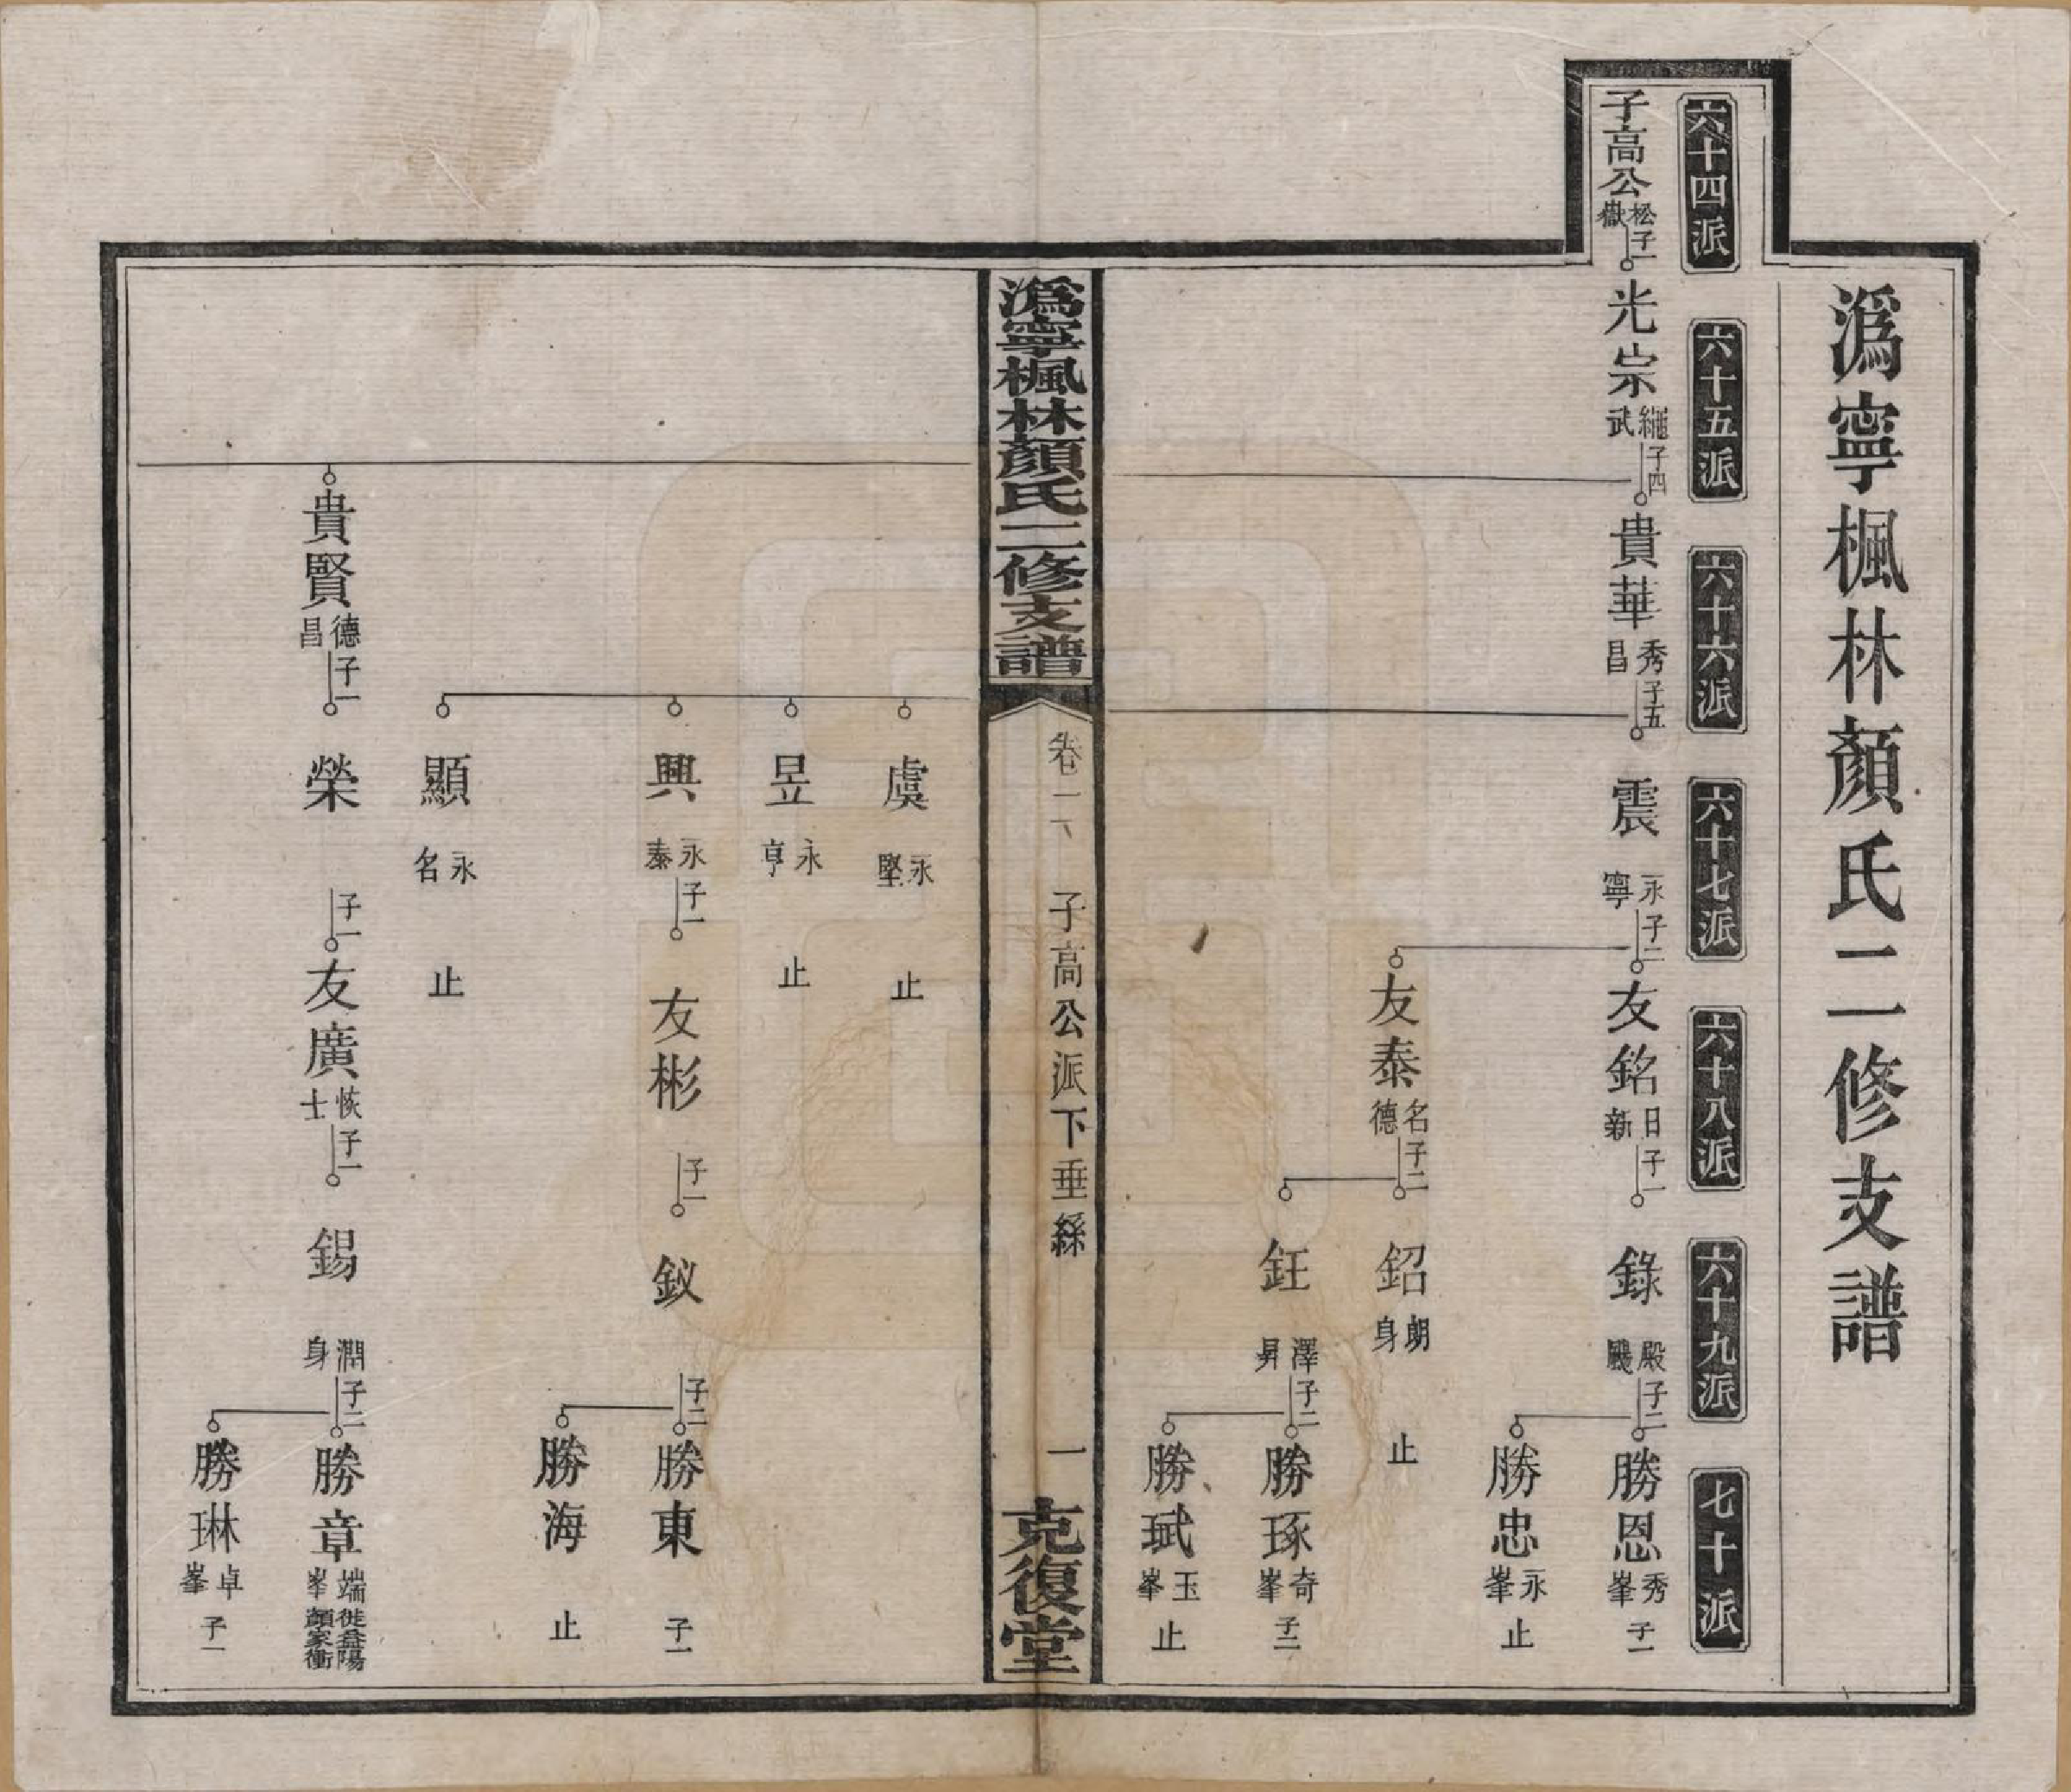 溈寧楓林顏氏二修支譜
六十四派
六十五派
六十六派
六十七派
六十八派
六十九派
七十派
子高公 松嶽 子一
光宗 繩武 子四
貴華 秀昌 子五
震 永寧 子二
友銘 日新 子一
錄 殿颺 子二
勝恩 秀峯 子一
勝忠 永峯 止
友泰 名德 子二
鉊 朗身 止
鈺 澤昇 子二
勝琢 奇峯 子二
勝珷 玉峯 止
溈寧楓林顏氏二修支譜
卷 子高公派下垂絲
一
克復堂
虞 永堅 止
昱 永亨 止
興 永泰 子一
友彬 子一
釵 子二
勝東 子一
勝海 止
顯 永名 止
貴賢 德昌 子一
榮 子一
友廣 恢士 子一
錫 潤身 子二
勝章 端峯 徙益陽顏家衝
勝琳 卓峯 子一